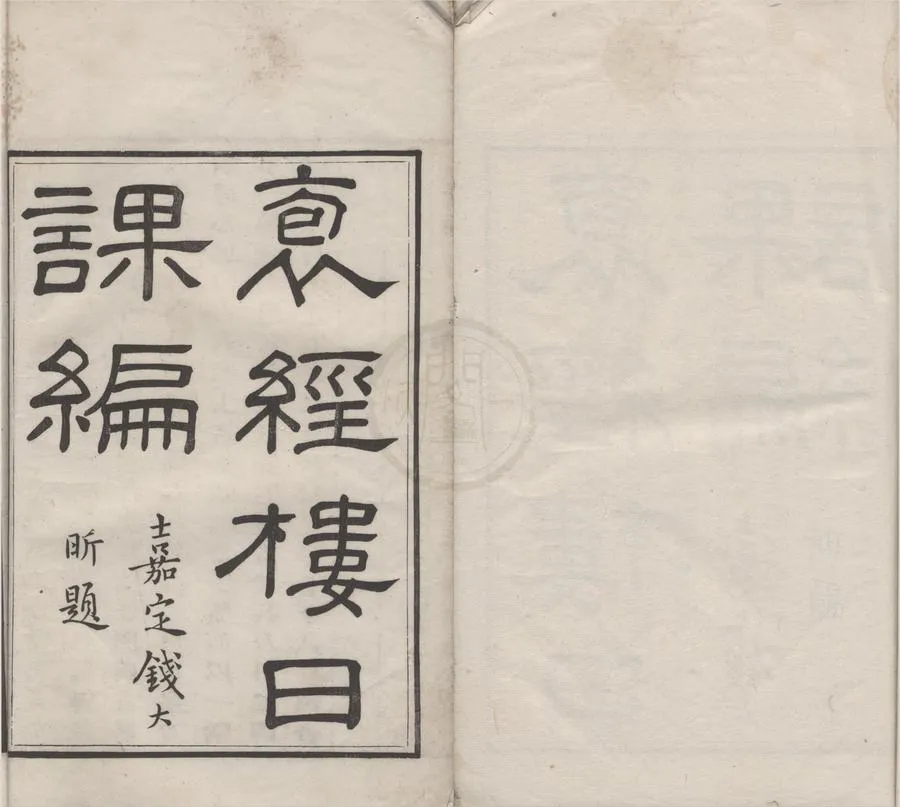 袌經樓日
課編
嘉定錢大
昕題